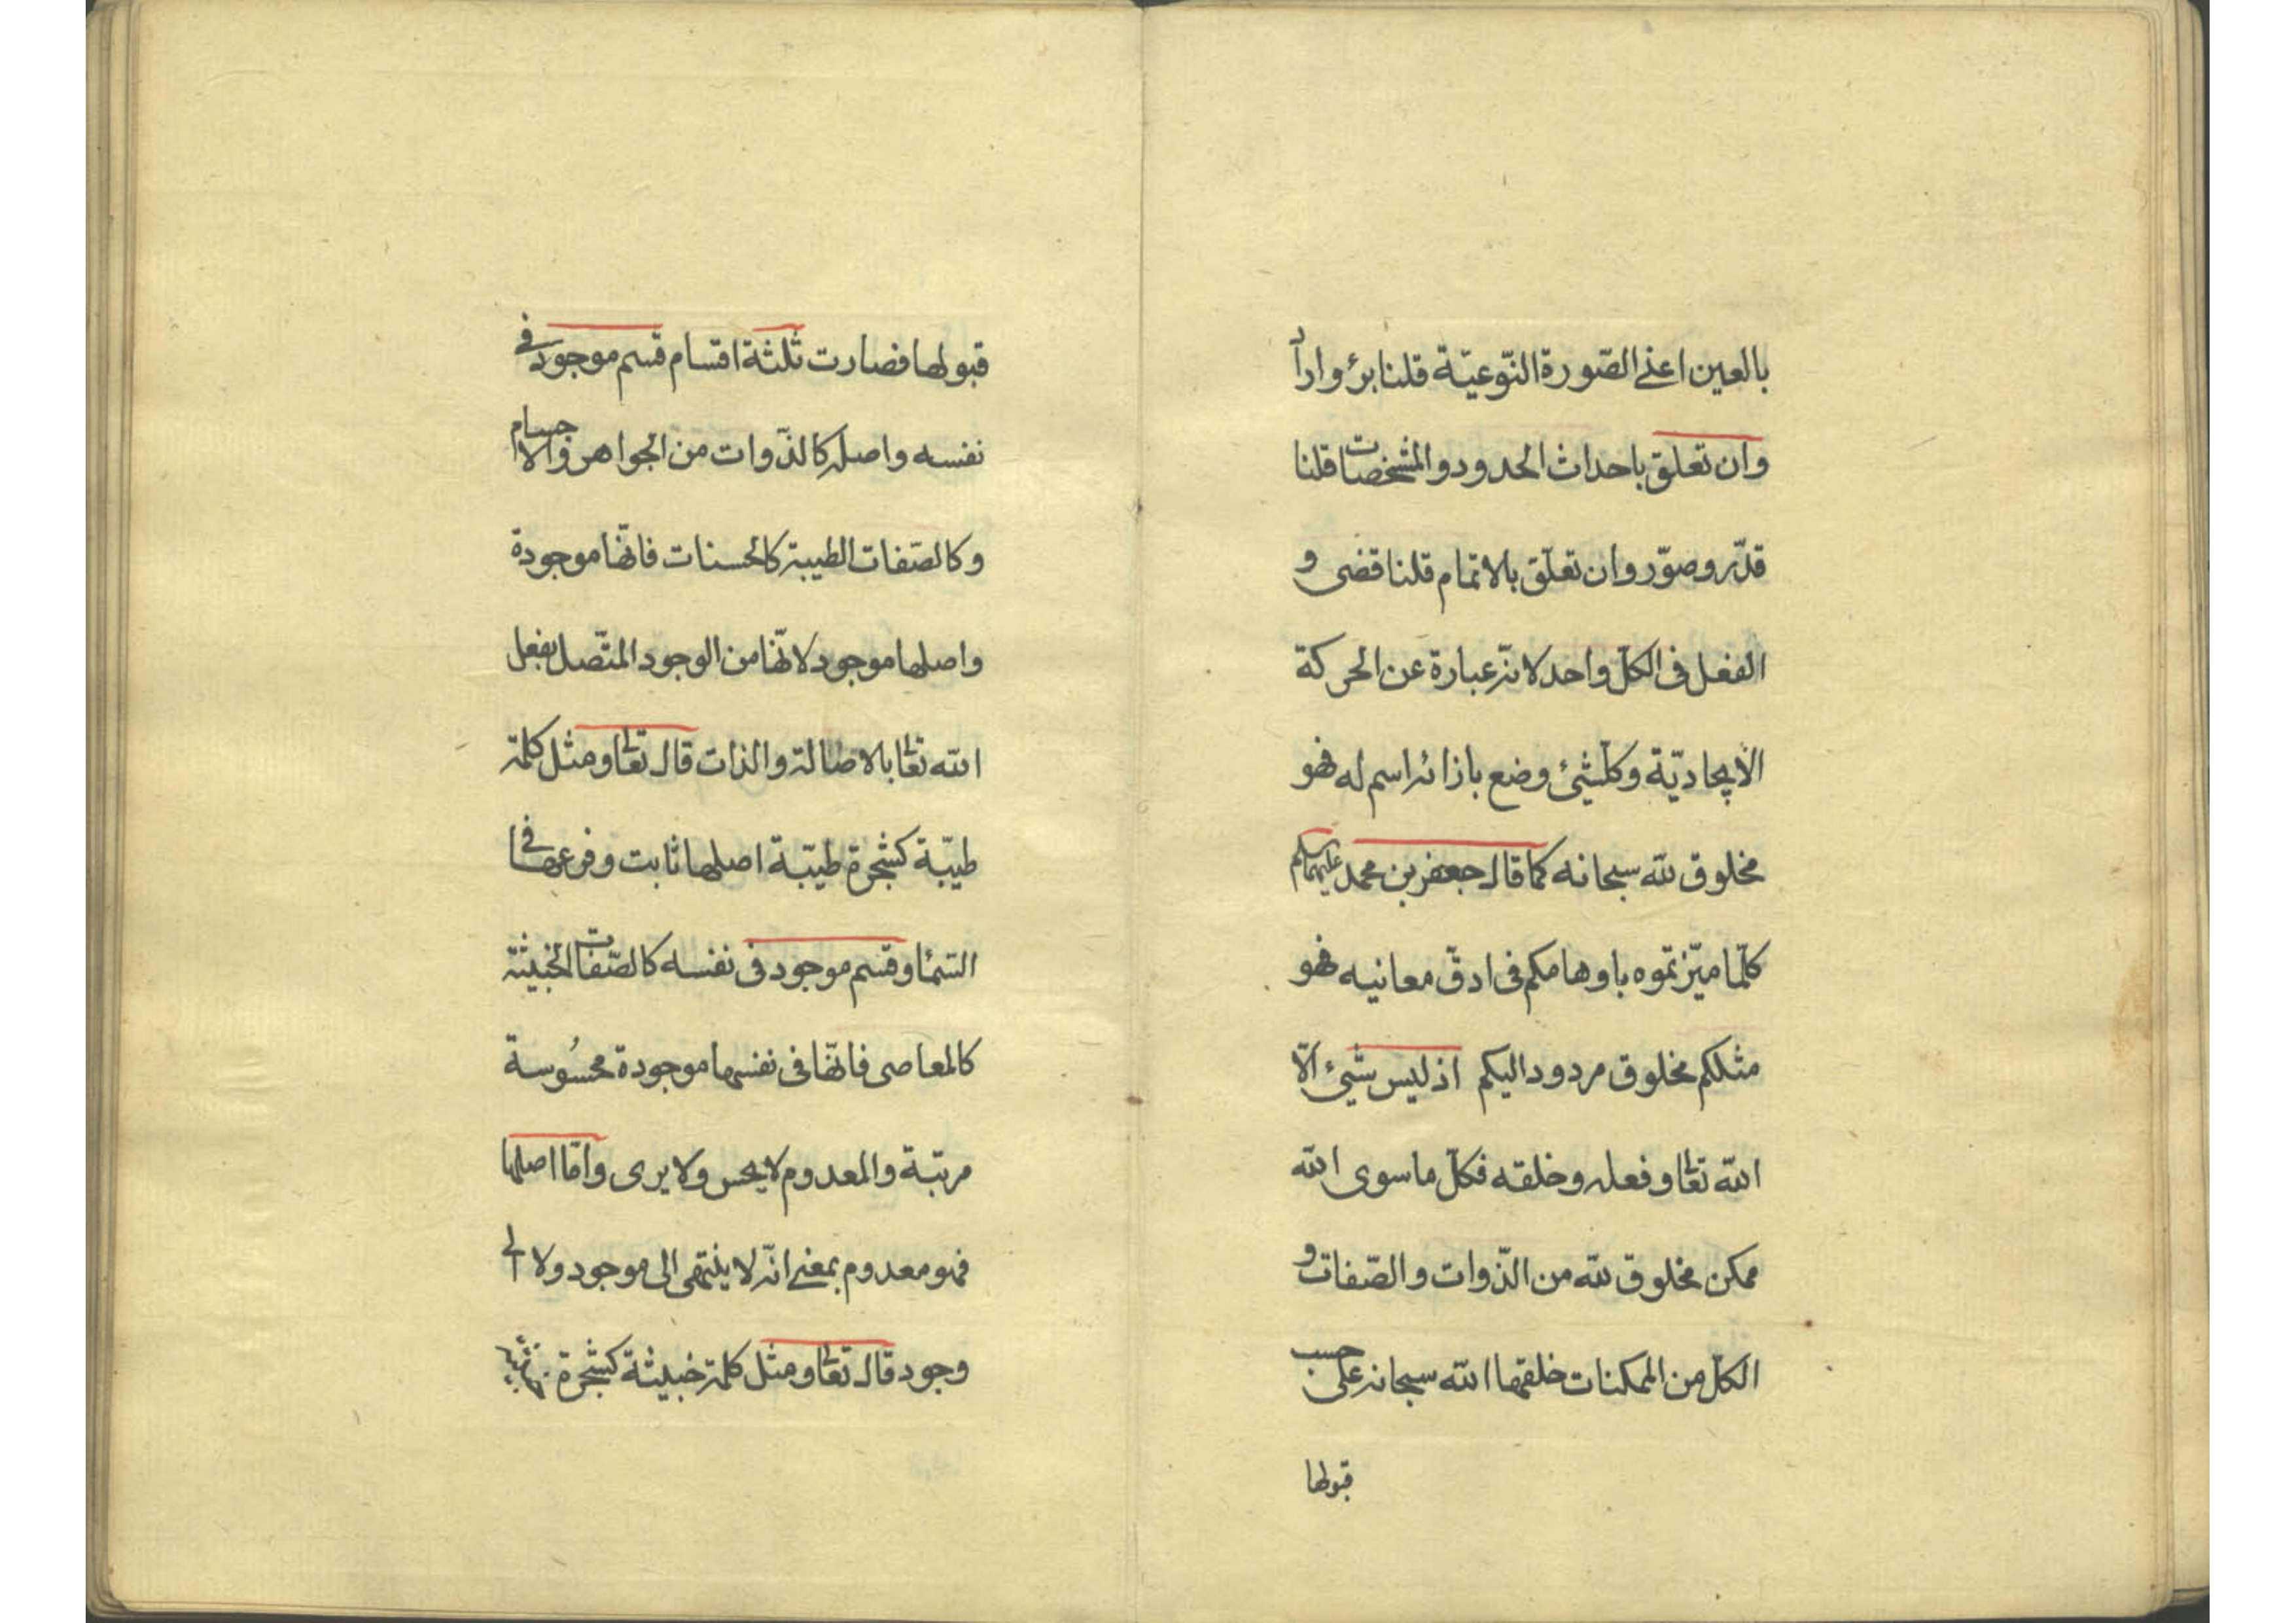 بالعين اعنى الصّورة النّوعيّة قلنا برؤ واراد
وان تعلق باحداث الحدود والمشخصات قلنا
قدّر وصوّر وان تعلّق بالاتمام قلنا قضى و
الفعل فى الكلّ واحد لانّه عبارة عن الحركة
الايجاديّة وكلّشئ وضع بازائه اسم له فهو
مخلوق لله سبحانه كما قال جعفر بن محمد
كلّما ميّزتموه باوهامكم فى ادقّ معانيه فهو
مثلكم مخلوق مردود اليكم اذ ليس شئ الّا
الله تعالى وفعله وخلقه فكلّ ما سوى الله
ممكن مخلوق لله من الذّوات والصّفات و
الكلّ من الممكنات خلقها الله سبحانه على حسب
قبولها
قبولها فصارت ثلثة اقسام قسم موجود فى
نفسه واصله كالذّوات من الجواهر والاجسام
وكالصّفات الطيبة كالحسنات فانّها موجودة
واصلها موجود لانّها من الوجود المتّصل بفعل
الله تعالى بالاصالة والذات قال تعالى ومثل كلمة
طيّبة كشجرة طيّبة اصلها ثابت وفرعها فى
السّماء وقسم موجود فى نفسه كالصّفات الخبيثة
كالمعاصى فانّها فى نفسها موجودة محسُوسة
مرتبة والمعدوم لا يحس ولا يرى وامّا اصلها
فهو معدوم بمعنى انّه لا ينتهى الى موجود ولا الى
وجود قال تعالى ومثل كلمة خبيثة كشجرة خبيثة